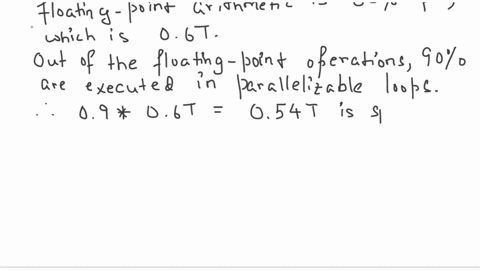 floating-point arithmetic is
which is 0.6T.
Out of the floating-point operations, 90%
are executed in parallelizable loops.
∴ 0.9 * 0.6T = 0.54T is sp